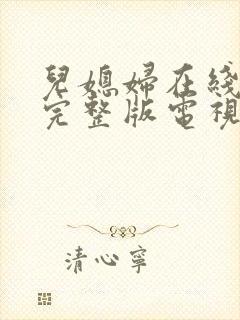 兒媳婦在綫
完整版電視
清心寧